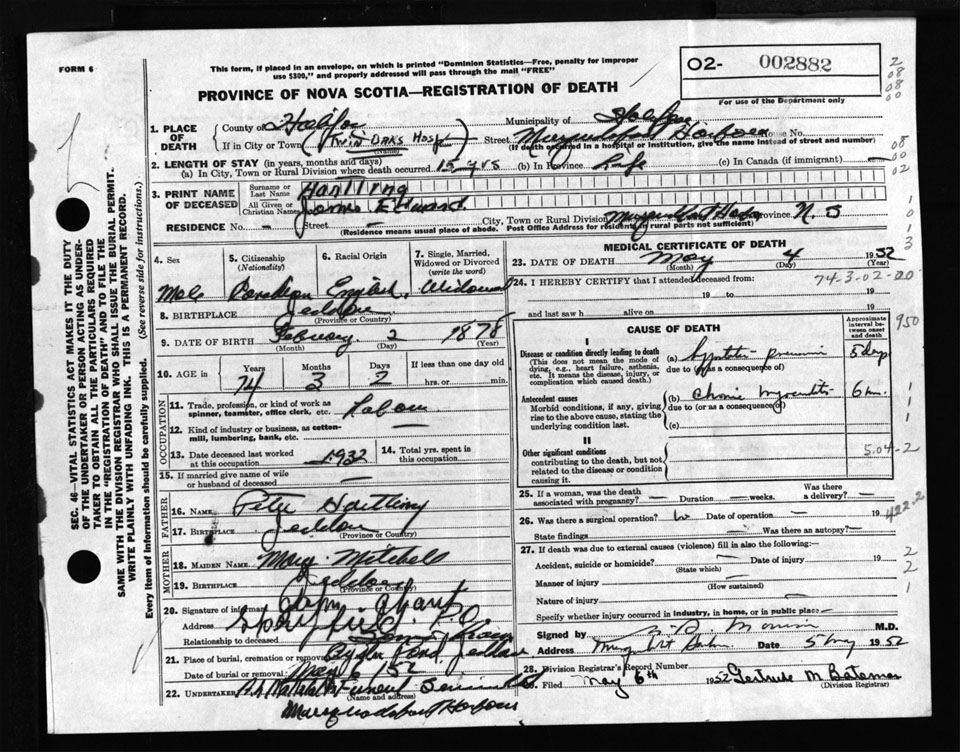 FORM 6
This form, if placed in an envelope, on which is printed "Dominion Statistics—Free, penalty for improper
use $300," and properly addressed will pass through the mail "FREE"
O2- 002882
For use of the Department only
PROVINCE OF NOVA SCOTIA—REGISTRATION OF DEATH
1. PLACE OF DEATH
County of Halifax Municipality of Halifax
If in City or Town (Twin Oaks Hosp) Street Musquodoboit Harbour House No.
(Name) (If death occurred in a hospital or institution, give the name instead of street and number)
2. LENGTH OF STAY (in years, months and days)
(a) In City, Town or Rural Division where death occurred 15 yrs (b) In Province Life (c) In Canada (if immigrant) —
3. PRINT NAME OF DECEASED
Surname or Last Name Hartling
All Given or Christian Names James Edward
RESIDENCE No. — Street — City, Town or Rural Division Musquodoboit Harbor Province N. S
(Residence means usual place of abode. Post Office Address for residents in rural parts not sufficient)
4. Sex
Male
5. Citizenship (Nationality)
Canadian
6. Racial Origin
English
7. Single, Married, Widowed or Divorced (write the word)
Widowed
8. BIRTHPLACE Jeddore
(Province or Country)
9. DATE OF BIRTH February 2 1878
(Month) (Day) (Year)
10. AGE in Years Months Days If less than one day
74 3 2 hrs. or min.
OCCUPATION
11. Trade, profession, or kind of work as spinner, teamster, office clerk, etc. Labour
12. Kind of industry or business, as cotton-mill, lumbering, bank, etc. —
13. Date deceased last worked at this occupation 1932 14. Total yrs. spent in this occupation
15. If married give name of wife or husband of deceased —
FATHER
16. NAME Peter Hartling
17. BIRTHPLACE Jeddore
MOTHER
18. MAIDEN NAME Mary Mitchell
19. BIRTHPLACE Jeddore
(Province or Country)
20. Signature of informant John Grant
Address
Relationship to deceased
21. Place of burial, cremation or removal Oyster Pond, Jeddore
Date of burial or removal May 6 / 52
22. UNDERTAKER Funeral Service
(Name and address)
Musquodoboit Harbour
MEDICAL CERTIFICATE OF DEATH
23. DATE OF DEATH May 4 1952
(Month) (Day) (Year)
24. I HEREBY CERTIFY that I attended deceased from: 74-3-02-00
19 to 19
and last saw h alive on 19
CAUSE OF DEATH
Approximate interval between onset and death
I
Disease or condition directly leading to death
(This does not mean the mode of dying, e.g., heart failure, asthenia, etc. It means the disease, injury, or complication which caused death.)
(a) Hypostatic pneumonia 5 days
due to (or as a consequence of)
Antecedent causes
Morbid conditions, if any, giving rise to the above cause, stating the underlying condition last.
(b) Chronic myocarditis 6 mo.
due to (or as a consequence of)
(c)
II
Other significant conditions
contributing to the death, but not related to the disease or condition causing it.
5.04-2
25. If a woman, was the death associated with pregnancy? — Duration — weeks. Was there a delivery? —
26. Was there a surgical operation? no Date of operation — 19
State findings Was there an autopsy? —
422-2
27. If death was due to external causes (violence) fill in also the following:—
Accident, suicide or homicide? — Date of injury 19
(State which)
Manner of injury —
(How sustained)
Nature of injury —
Specify whether injury occurred in industry, in home, or in public place —
Signed by M.D.
Address Date 5 May 1952
28. Division Registrar's Record Number
29. Filed May 6th 1952 Gertrude M Bateman
(Division Registrar)
SEC. 46—VITAL STATISTICS ACT MAKES IT THE DUTY
OF THE UNDERTAKER OR PERSON ACTING AS UNDER-
TAKER TO OBTAIN ALL THE PARTICULARS REQUIRED
IN THE "REGISTRATION OF DEATH" AND TO FILE THE
SAME WITH THE DIVISION REGISTRAR WHO SHALL ISSUE THE BURIAL PERMIT.
WRITE PLAINLY WITH UNFADING INK. THIS IS A PERMANENT RECORD.
Every item of information should be carefully supplied. (See reverse side for instructions.)